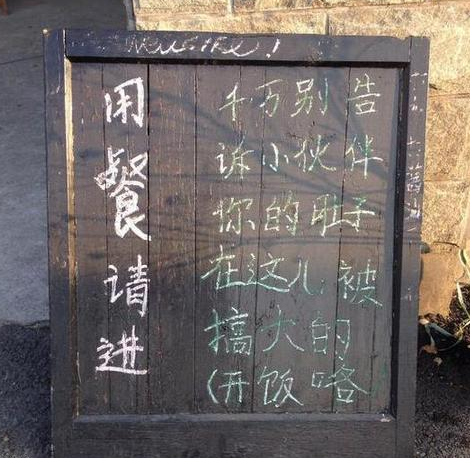 Welcome!
用餐请进
千万别告
诉小伙伴
你的肚子
在这儿被
搞大的
(开饭咯